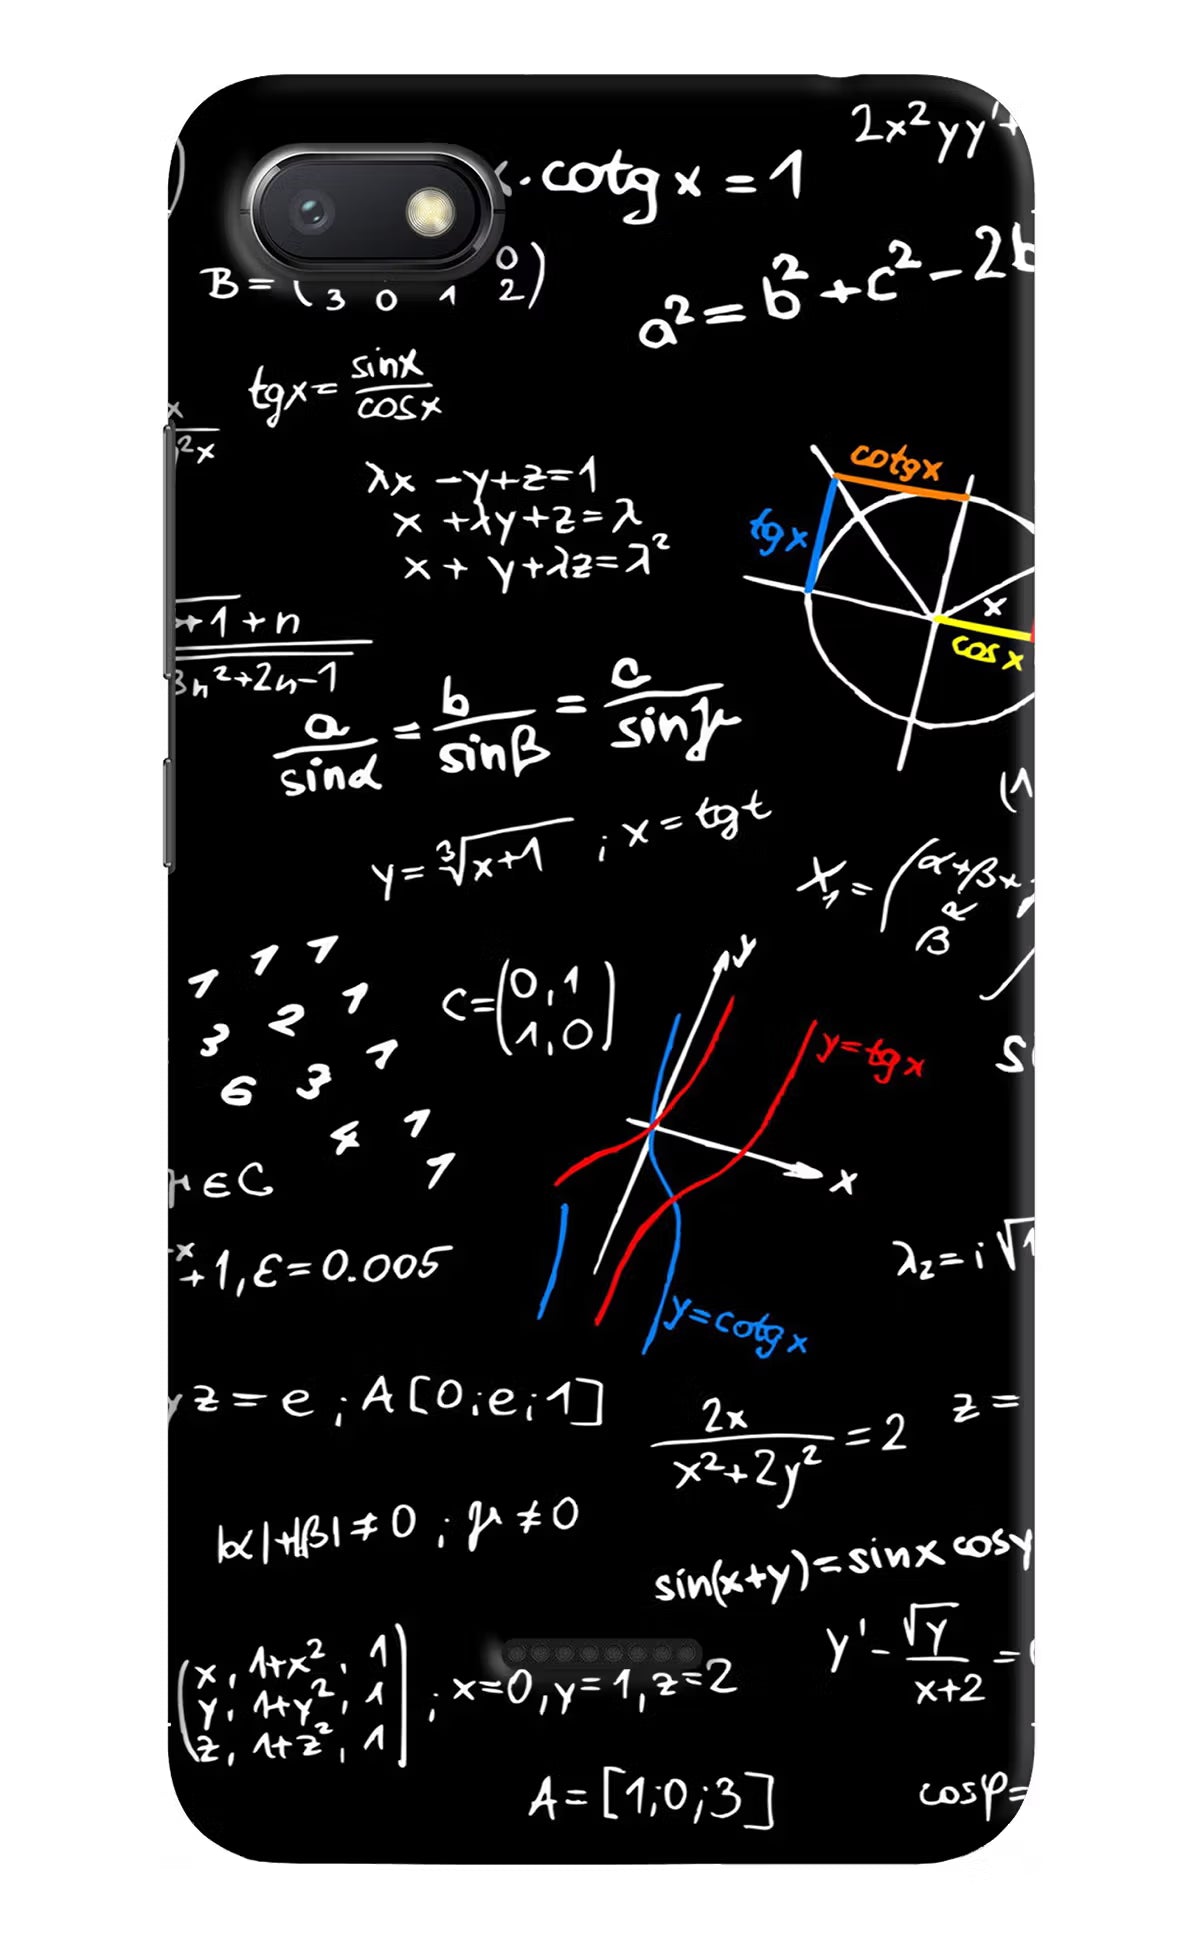 2x²yy'+
x·cotg x = 1
B = (3 0 1 0 2)
a² = b² + c² - 2b
tgx = sinx / cosx
x / ²x
cotgx
tgx
x
cosx
λx - y + z = 1
x + λy + z = λ
x + y + λz = λ²
+1 + n / 3n²+2n-1
a/sinα = b/sinβ = c/sinμ
y = ³√x+1 ; x = tgt
(1
X₁ = (α+βx
β R
1 1 1
3 2 1
6 3 1
4 1
1
C = (0,1
1,0)
y
y=tgx
x
y=cotgx
μ∈C
x+1, ε=0.005
λ₂ = i√1
yz = e ; A[0;e;1]
2x / x²+2y² = 2
z =
|α|+|β| ≠ 0 ; μ ≠ 0
sin(x+y) = sinx cosy
y' - √y / x+2 = 0
(x, 1+x², 1
y, 1+y², 1
z, 1+z², 1) ; x=0, y=1, z=2
A = [1;0;3]
cosφ=